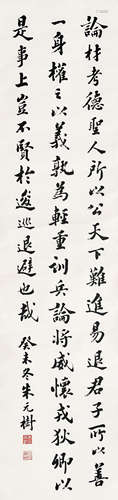 論材考德聖人所以公天下難進易退君子所以善
一身權之以義孰為輕重訓兵論將威懷戎狄卿以
是事上豈不賢於逡巡退避也哉
癸未冬朱元樹